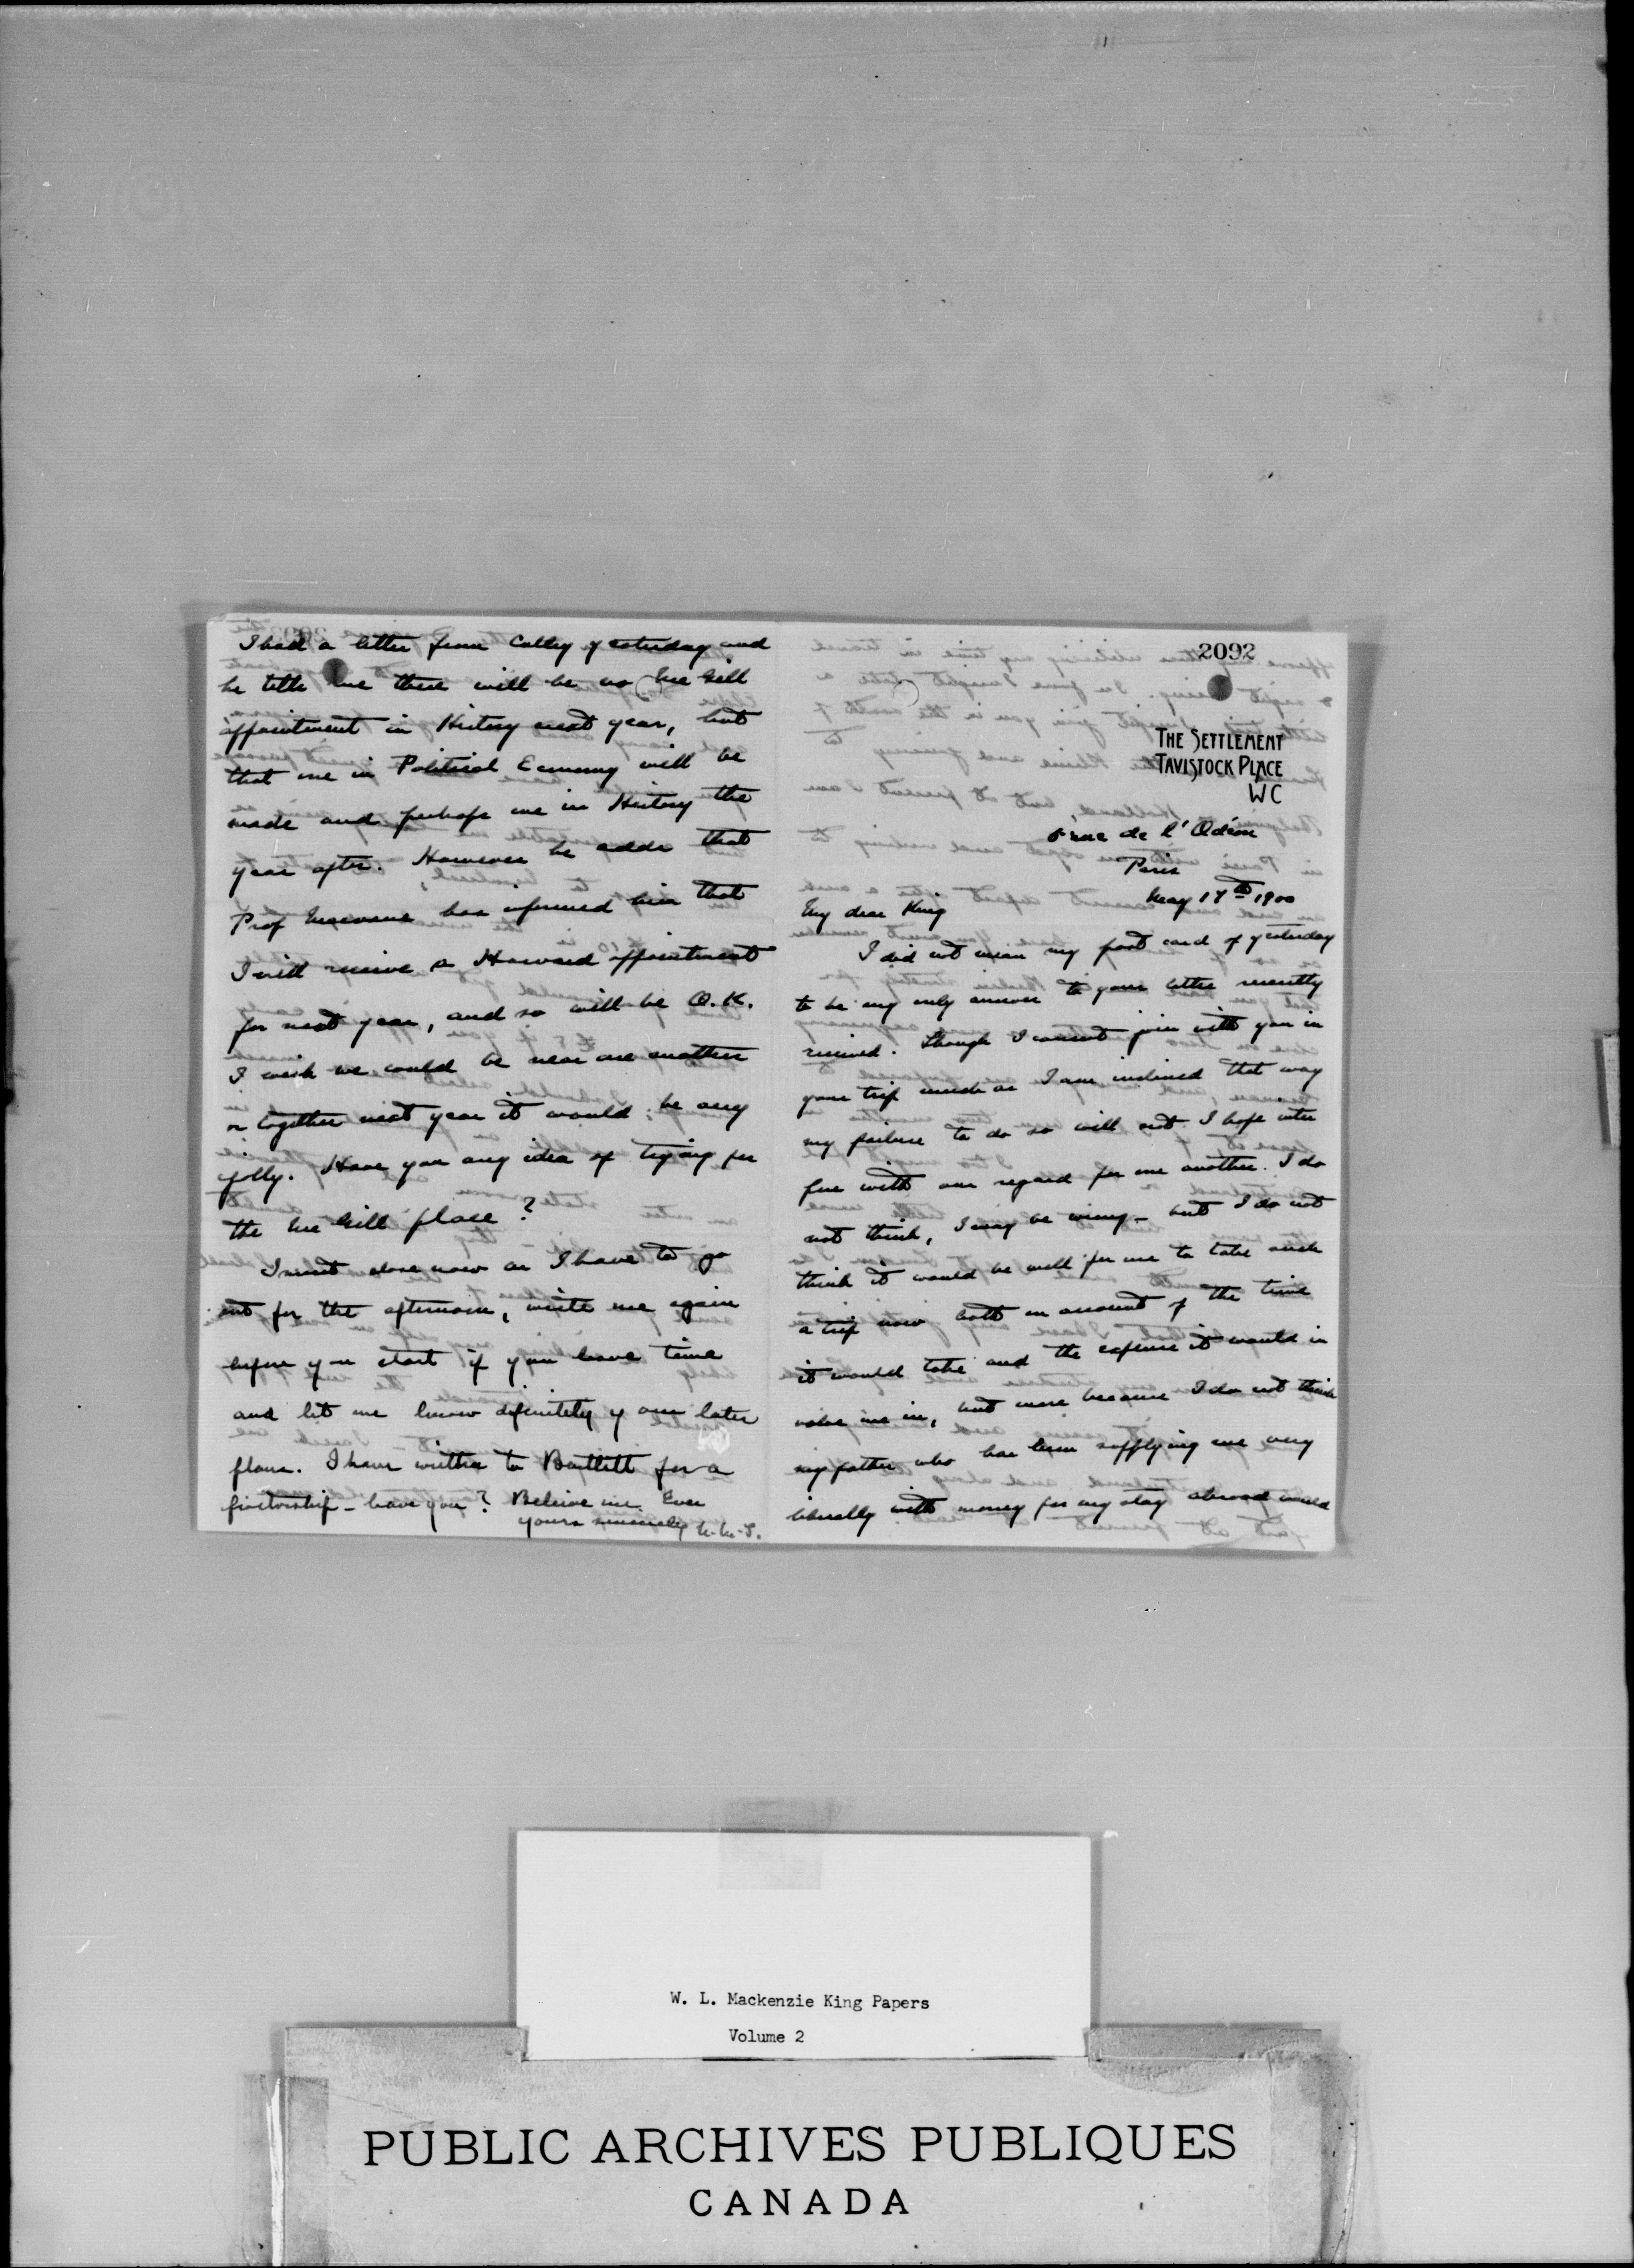 2092
THE SETTLEMENT
TAVISTOCK PLACE
WC
rue de l'Odéon
Paris
May 17th 1900
My dear King
I did not mean my post card of yesterday
to be my only answer to your letter recently
received. Though I cannot join with you in
your trip much as I am inclined that way
my failure to do so will not I hope inter
fere with our regard for one another. I do
not think, I may be wrong - but I do not
think it would be well for me to take such
a trip now both on account of the time
it would take and the expense it would in
volve me in, but more because I do not think
my father who has been supplying me very
liberally with money for my stay abroad would
I had a letter from Colley yesterday and
he tells me there will be no McGill
appointment in History next year, but
that one in Political Economy will be
made and perhaps one in History the
year after. However he adds that
Prof Macvane has informed him that
I will receive a Harvard appointment
for next year, and so will be O.K.
I wish we could be near one another
or together next year it would be very
jolly. Have you any idea of trying for
the McGill place?
I must close now as I have to go
out for the afternoon, write me again
before you start if you have time
and let me know definitely your later
plans. I have written to Bartlett for a
proctorship - have you? Believe me Ever
yours sincerely
W. L. Mackenzie King Papers
Volume 2
PUBLIC ARCHIVES PUBLIQUES
CANADA